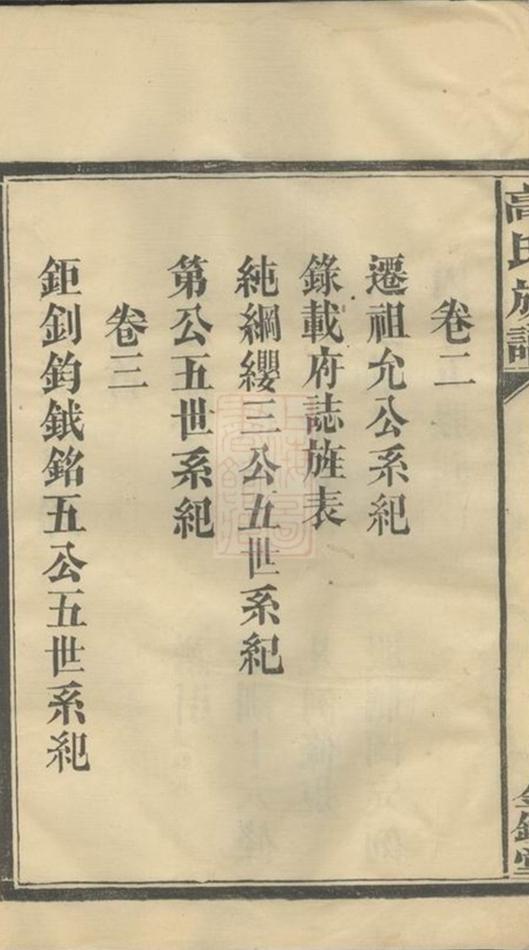 高氏族譜
卷二
遷祖允公系紀
錄載府誌旌表
純綱纓三公五世系紀
第公五世系紀
卷三
鉅釗鈞鉞銘五公五世系紀